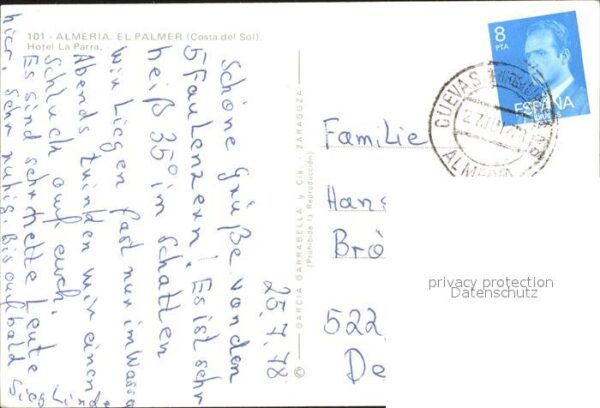 101 - ALMERIA. EL PALMER (Costa del Sol).
Hotel La Parra.
25.7.78
Schöne Grüße von den
5 Faulenzern! Es ist sehr
heiß 35° im Schatten
Wir liegen fast nur im Wasser
Abends trinken wir einen
Schluck auf euch.
Es sind sehr nette Leute
hier, sehr ruhig. Bis auf bald
© GARCIA GARRABELLA y Cia. - ZARAGOZA
(Prohibida la Reproducción)
8
PTA
ESPAÑA
CUEVAS
ALMERIA
Familie
Hans
Brö
522
De
privacy protection
Datenschutz